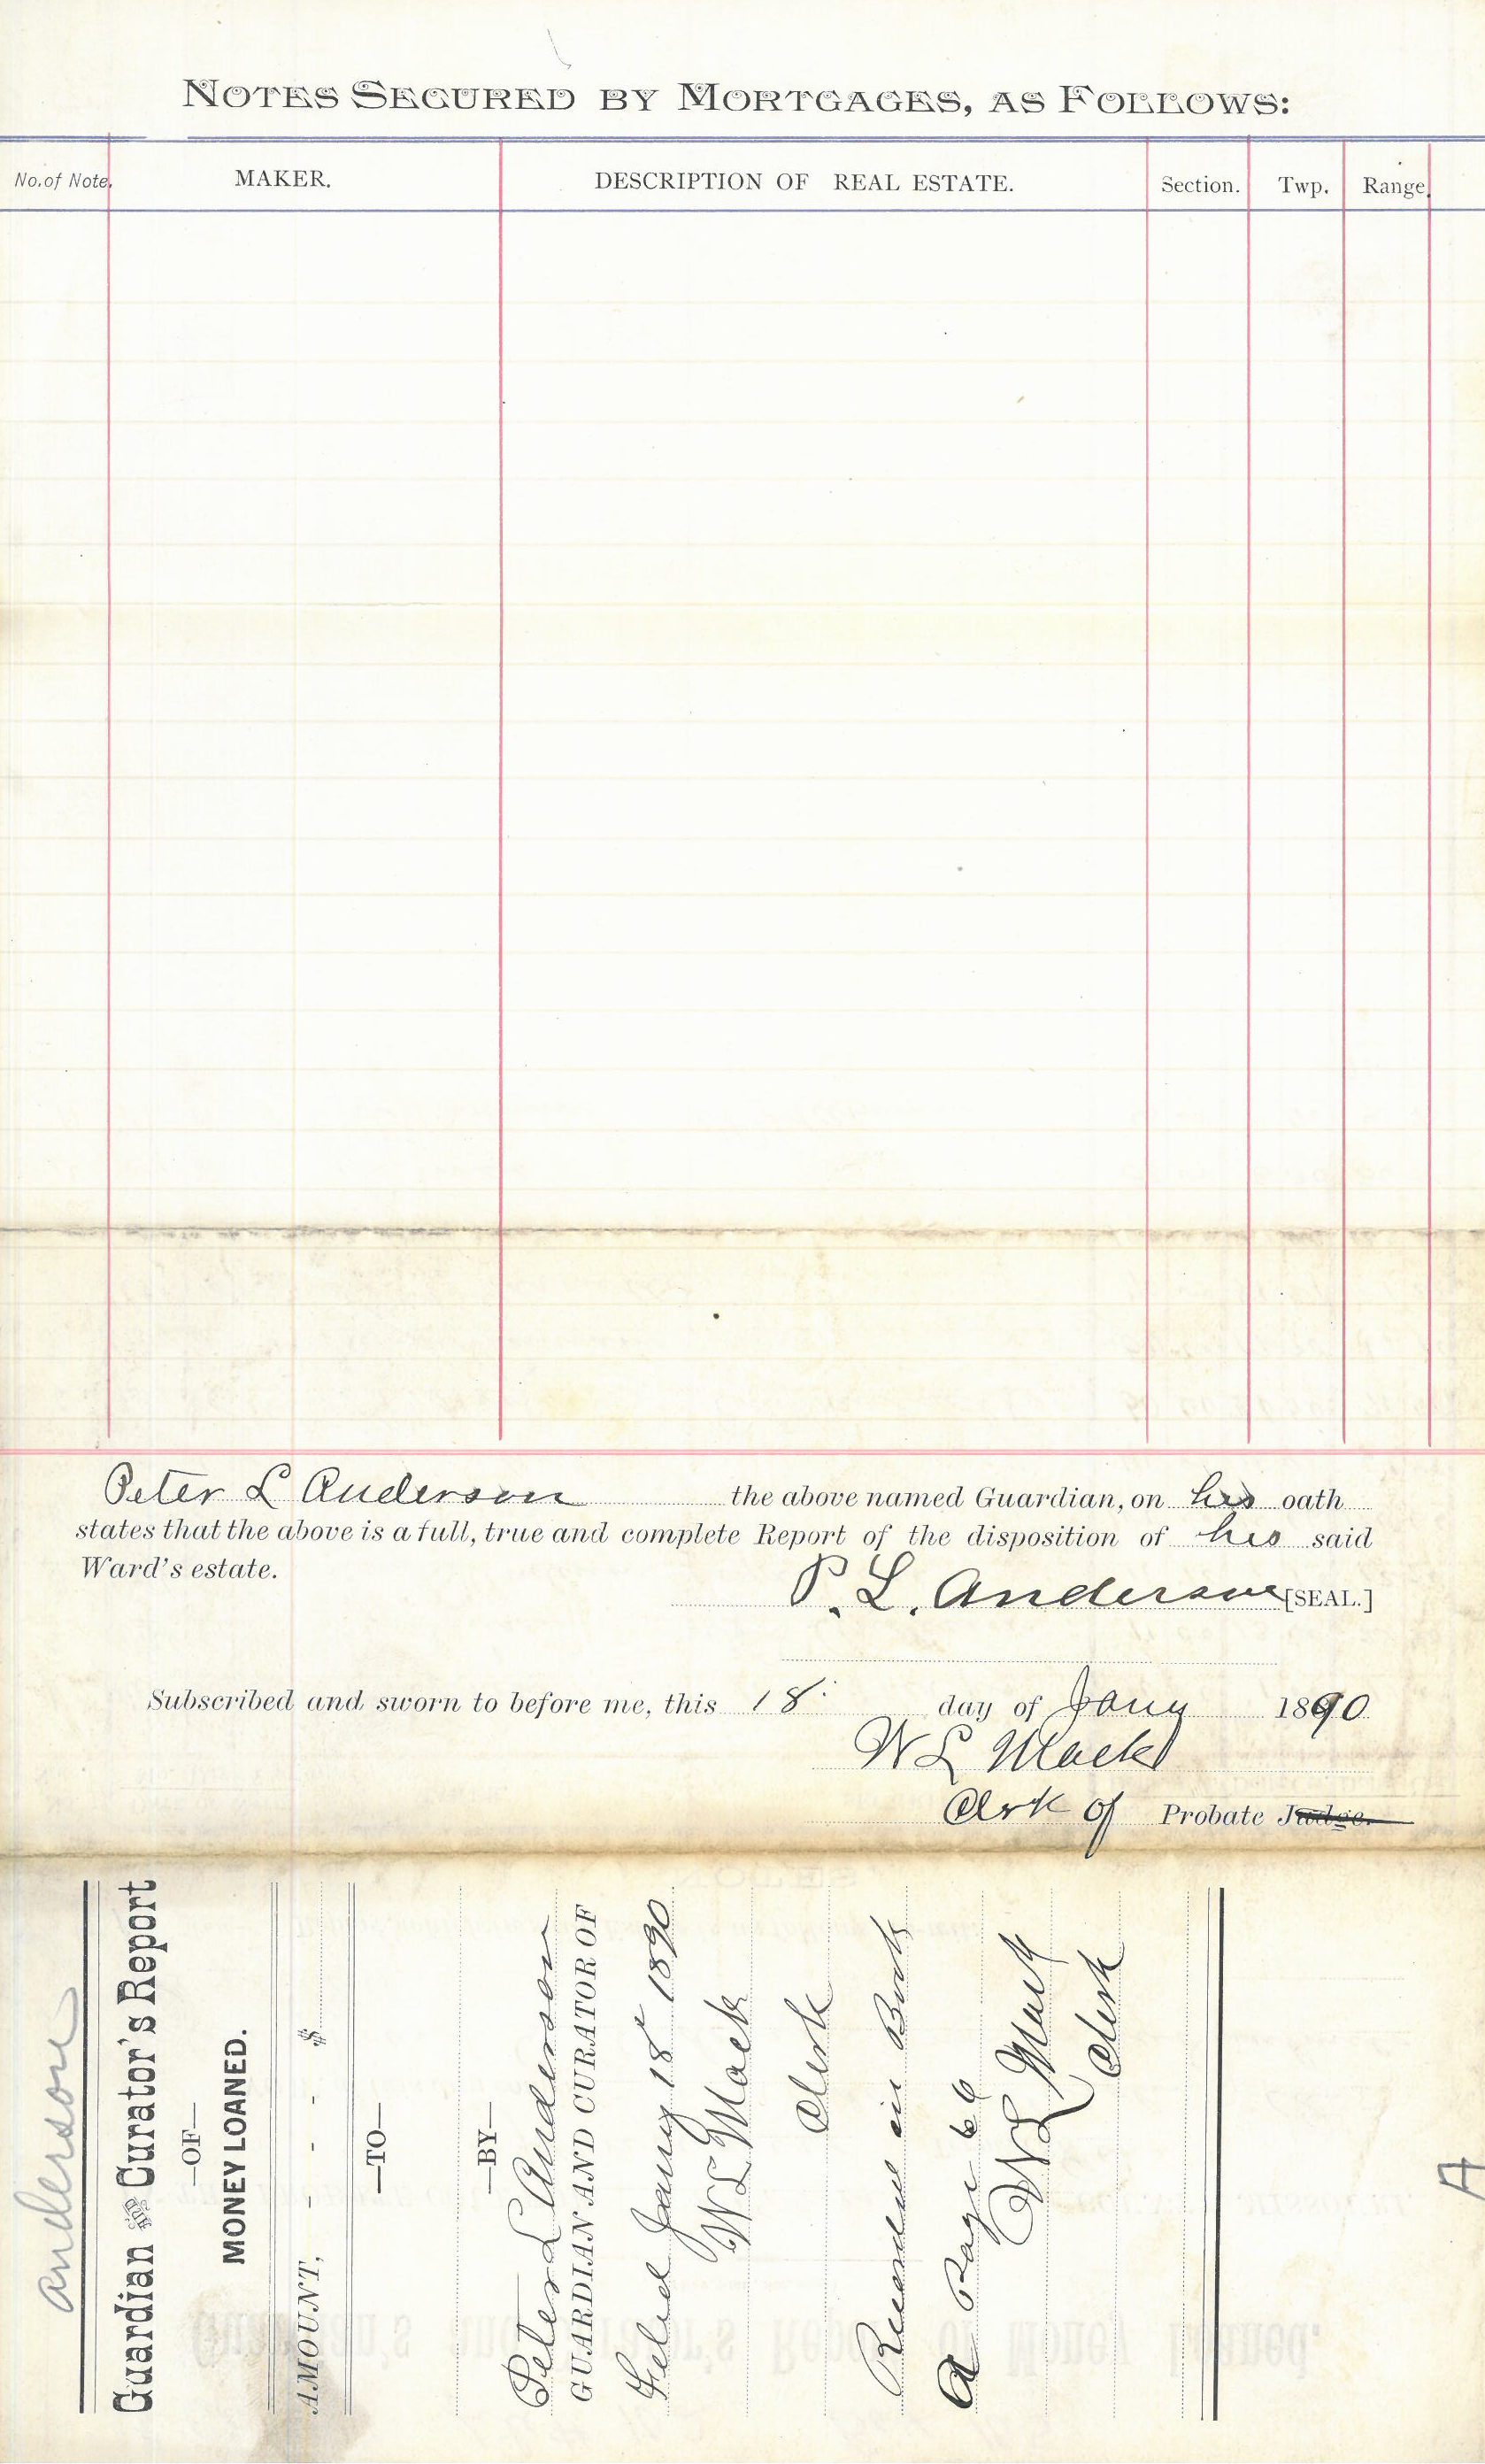 NOTES SECURED BY MORTGAGES, AS FOLLOWS:
No. of Note. MAKER. DESCRIPTION OF REAL ESTATE. Section. Twp. Range.
Peter L Anderson the above named Guardian, on his oath
states that the above is a full, true and complete Report of the disposition of his said
Ward's estate.
P. L. Anderson [SEAL.]
Subscribed and sworn to before me, this 18 day of Jany 1890
W L Mack
Clrk of Probate Judge.
Anderson
Guardian and Curator's Report
—OF—
MONEY LOANED.
AMOUNT, - - - $
—TO—
—BY—
Peter L Anderson
GUARDIAN AND CURATOR OF
Filed Jany 18 1890
W L Mack
Clerk
Recorded in Book
A Page 66
W L Mack
Clerk
A